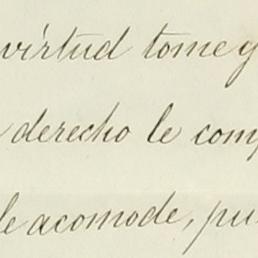 virtud tome y
derecho le comp
le acomode, pu